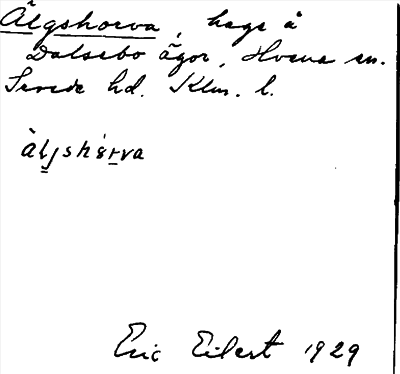 Älgshorva, hage å
Dalsebo ägor, Hvena sn.
Sevede hd. Klm. l.
Eric Eilert 1929